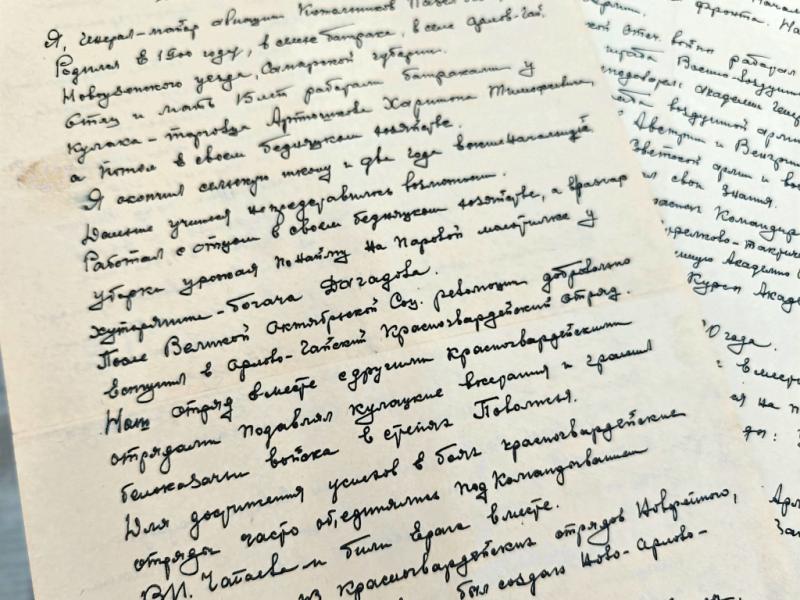 Я, Генерал-майор авиации Котельников Павел
Родился в 1900 году, в семье батрака, в селе Орлов-Гай,
Новоузенского уезда, Самарской губернии.
Отец и мать 15 лет работали батраками у
кулака-торговца Артюшкова Харитона Тимофеевича,
а потом в своем бедняцком хозяйстве.
Я окончил сельскую школу и два года
Дальше учиться не представилось возможности.
Работал с отцом в своем бедняцком хозяйстве, а в разгар
уборки урожая по найму на паровой молотилке у
хуторянина-богача Дагадова.
После Великой Октябрьской Соц. революции добровольно
вступил в Орлово-Гайский Красногвардейский отряд.
Наш отряд вместе с другими красногвардейскими
отрядами подавлял кулацкие восстания и громил
белоказачьи войска в степях Поволжья.
Для достижения успехов в боях красногвардейские
отряды часто объединялись под Командованием
В.И. Чапаева и били врага вместе.
из красногвардейских отрядов
был создан Ново-Орлово-
фронта.
отеч. войны работал
Военно-воздуш
академии
воздушной армии
Австрии и Венгрии
Советской армии и
свои знания.
Командир
стрелково-тактич
Академию
Курсы Академ
0 года.
вместе
на п